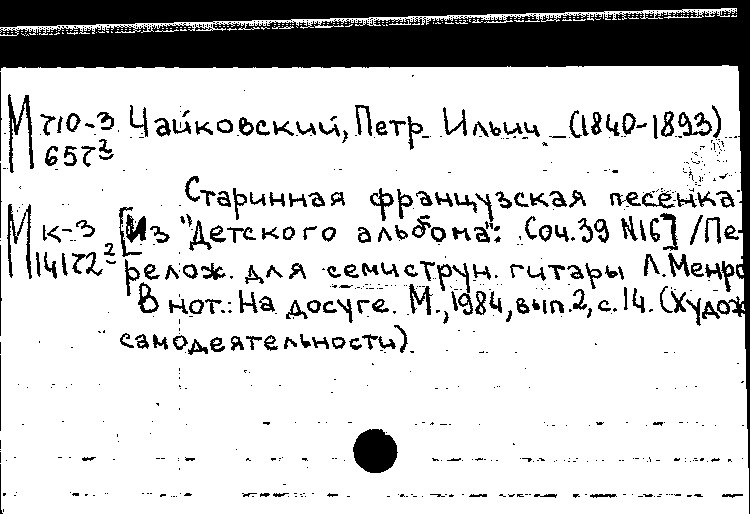 М 710-3 Чайковский, Петр Ильич (1840-1893)
657²
Старинная французская песенка
М к-3 [Из "Детского альбома": Соч.39 №16] /Пе-
14172² релож. для семиструн. гитары Л.Менро
В нот.: На досуге. М., 1984, вып.2, с.14. (Худож
самодеятельности)